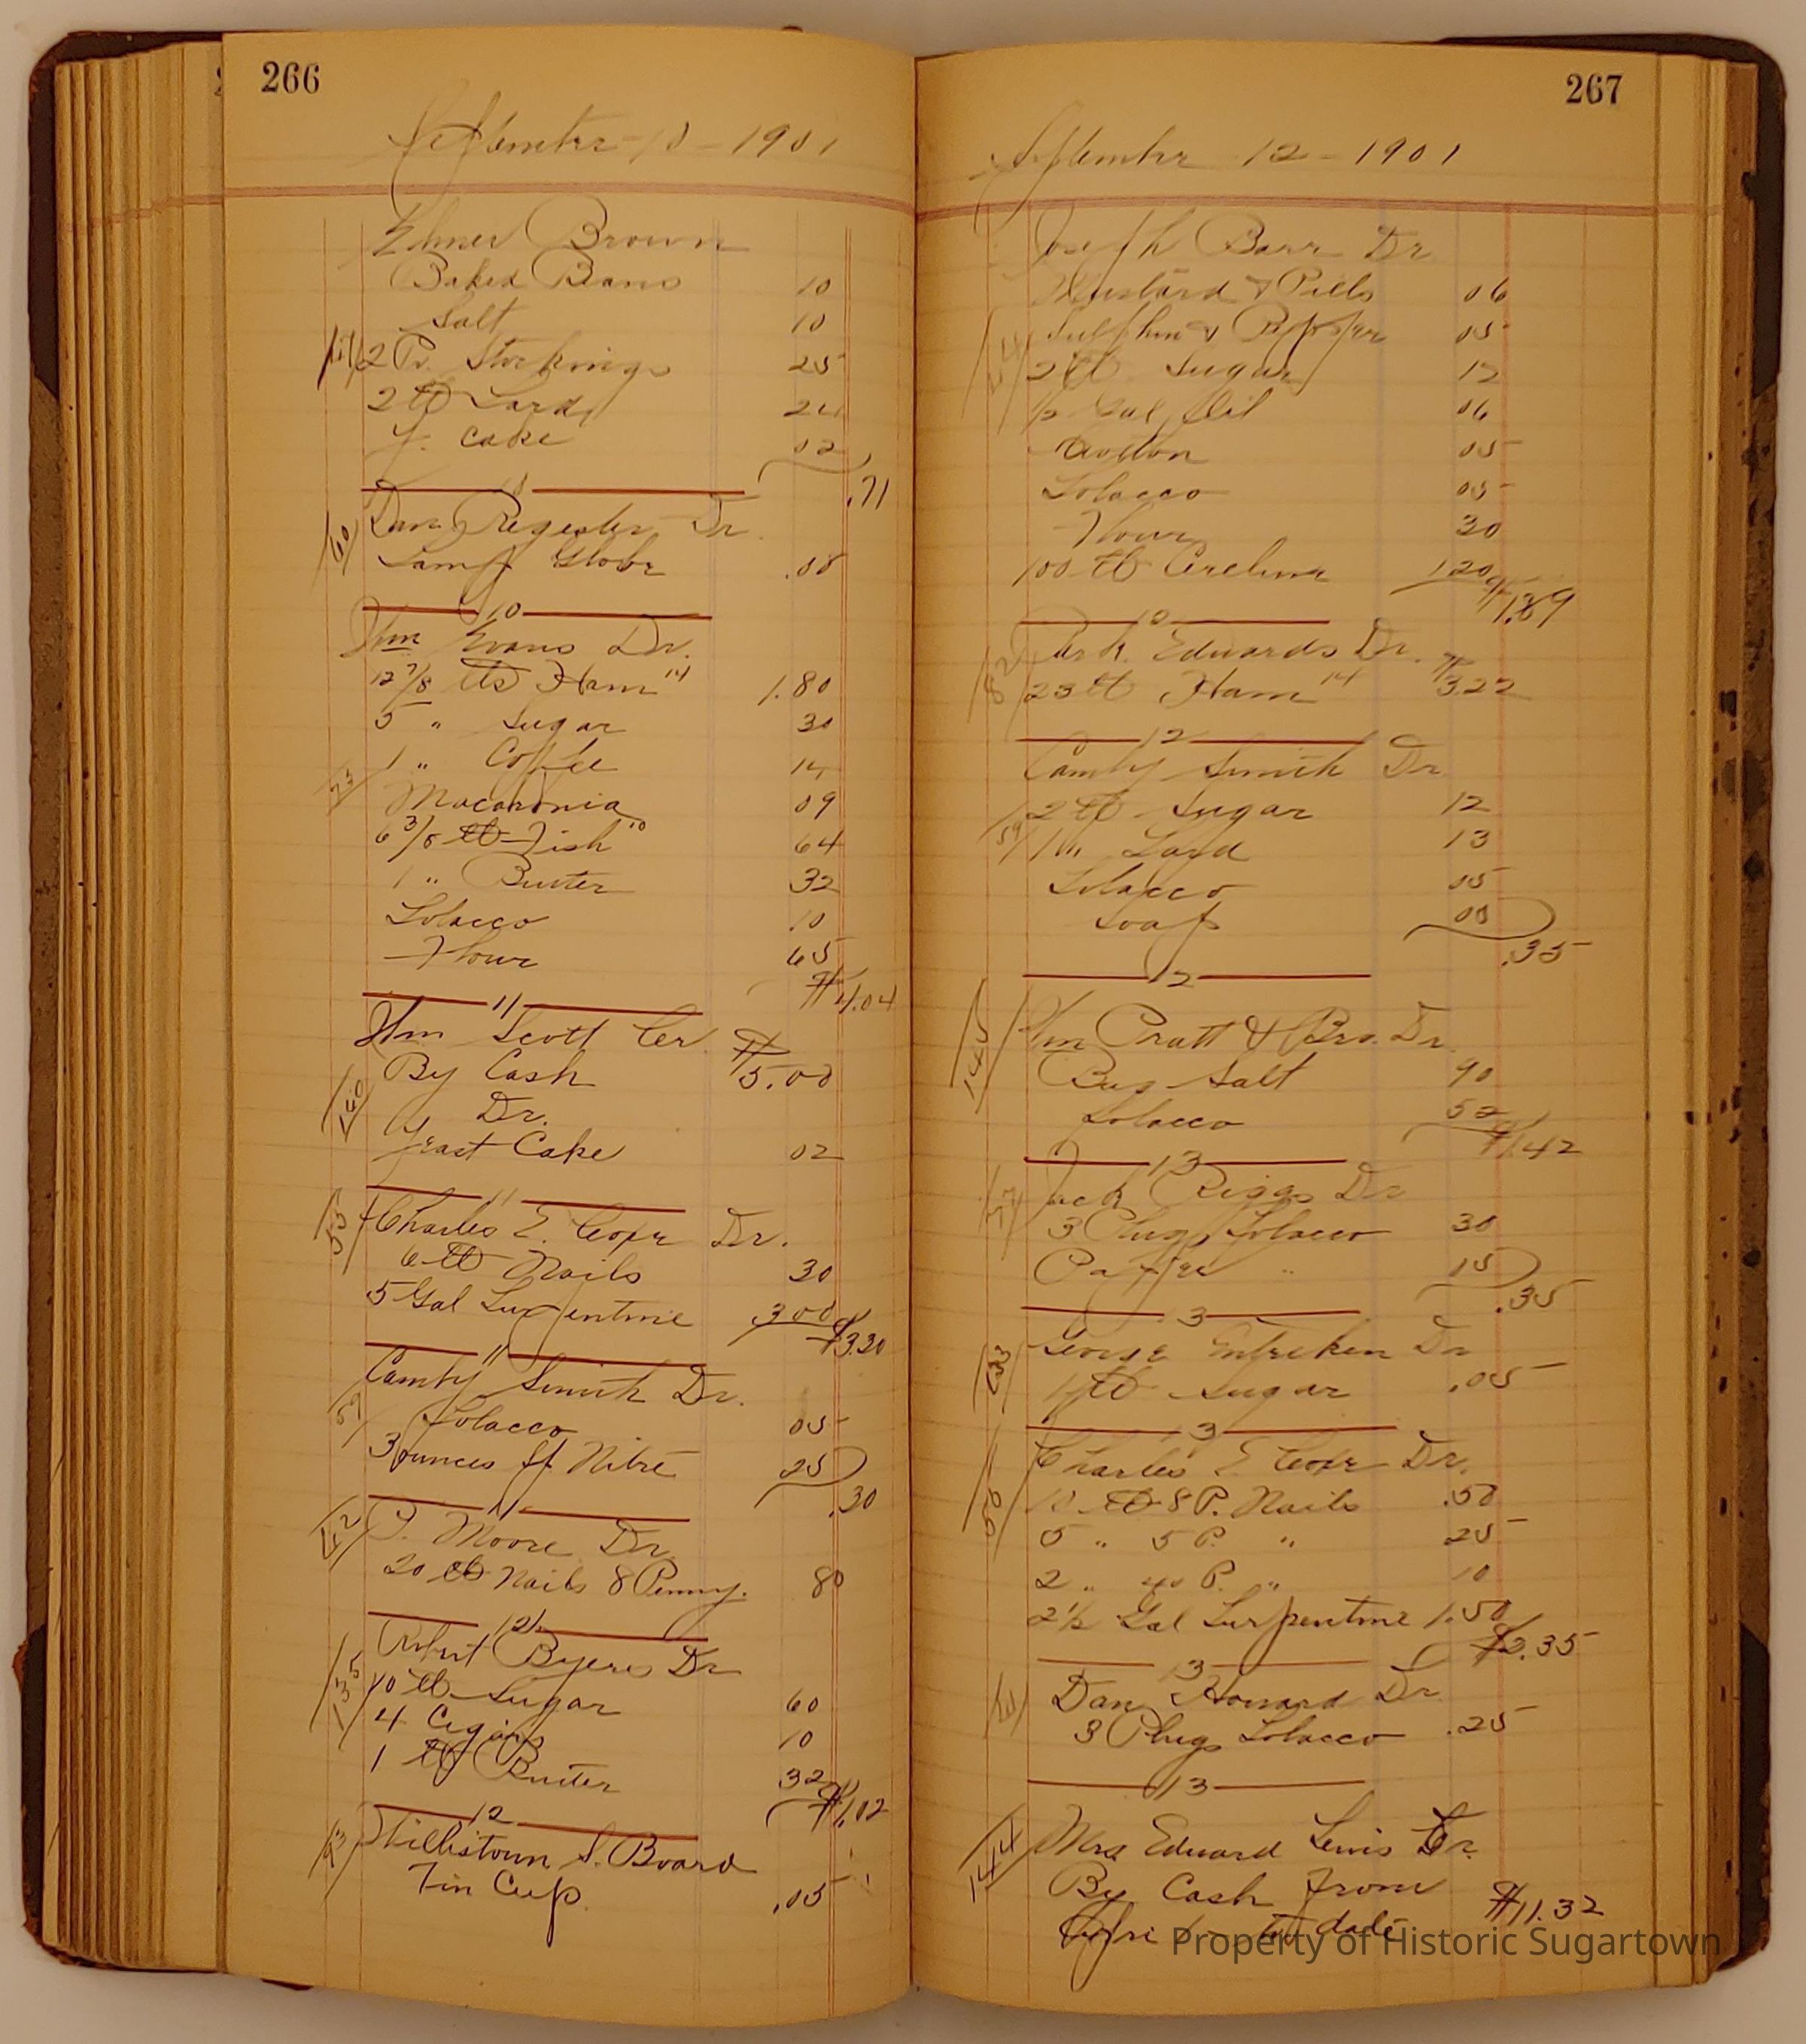 266
September 10 - 1901
Elmer Brown
Baked Beans 10
Salt 10
2 Pr. Stockings 25
2 lb Lard 24
Y. Cake 02
.71
10
60 Dan Regester Dr
Lamp Globe .08
10
Wm Evans Dr.
12 7/8 lbs Ham 14 1.80
5 " Sugar 30
1 " Coffee 14
Macaronia 09
6 3/8 lb Fish 10 64
1 " Butter 32
Tobacco 10
Flour 65
$4.04
11
Wm Scott Cr.
140 By Cash $5.00
Dr.
Yeast Cake 02
11
Charles E. Cope Dr.
6 lb Nails 30
5 Gal Turpentine 3 00
$3.30
11
Camby Smith Dr.
59 Tobacco 05
3 ounces Nitre 25
.30
11
42 Moore Dr
20 lb Nails 8 Penny. 80
12
Robert Byers Dr
135 10 lb Sugar 60
4 Cigars 10
1 lb Butter 32
$1.02
12
Willistown S. Board
Tin Cup .05
267
September 12 - 1901
Joseph Barr Dr
Mustard & Pills 06
Sulphur & Pepper 05
2 lb Sugar 12
1/2 Gal Oil 06
Cotton 05
Tobacco 05
Flour 30
100 lb Cerelina 120
$1.89
12
82 Park. Edwards Dr.
23 lb Ham 14 $3.22
12
Camby Smith Dr
2 lb Sugar 12
59 1 " Lard 13
Tobacco 05
Soap 05
.35
12
145 Wm Pratt & Bro. Dr.
Bag Salt 90
Tobacco 52
$1.42
13
Jack Riggs Dr
3 Plugs Tobacco 30
Paper " 15
.35
13
George Entreken Dr
1 lb Sugar .05
13
Charles E Cope Dr.
10 lb 8 P. Nails .50
5 " 5 P. " 25
2 " 40 P. " 10
2 1/2 Gal Turpentine 1.50
$2.35
13
Dan Howard Dr
3 Plugs Tobacco .25
13
144 Mrs Edward Lewis Cr.
By Cash from
to date $11.32
Property of Historic Sugartown